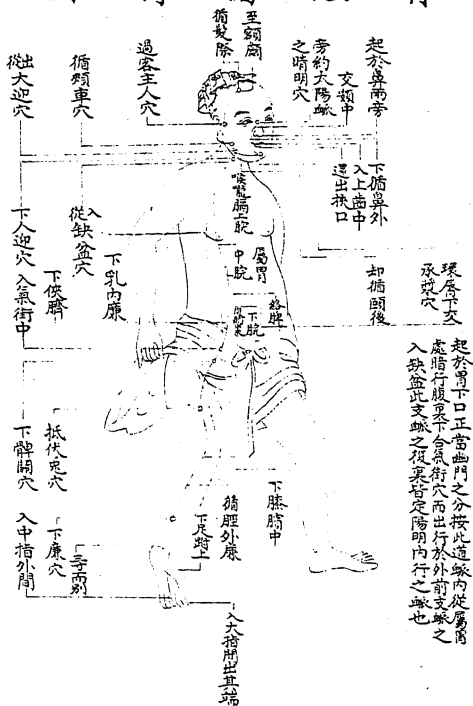 起於鼻兩旁
交頞中
旁約太陽脈
之睛明穴
至額顱
循髮際
過客主人穴
循頰車穴
出大迎穴
從
下循鼻外
入上齒中
還出挾口
環唇下交
承漿穴
却循頤後
喉嚨
膈上脘
中脘
屬胃
絡脾
下脘
入
從缺盆穴
下人迎穴
入氣街中
下乳內廉
下俠臍
起於胃下口正當幽門之分按此道脈內從屬胃
處暗行腹裏下合氣街穴而出行於外前支脈之
入缺盆此支脈之後裏皆定陽明內行之脈也
下髀關穴
抵伏兔穴
下膝臏中
循脛外廉
下足跗上
入中指外間
下廉穴
三寸而別
入大指間出其端